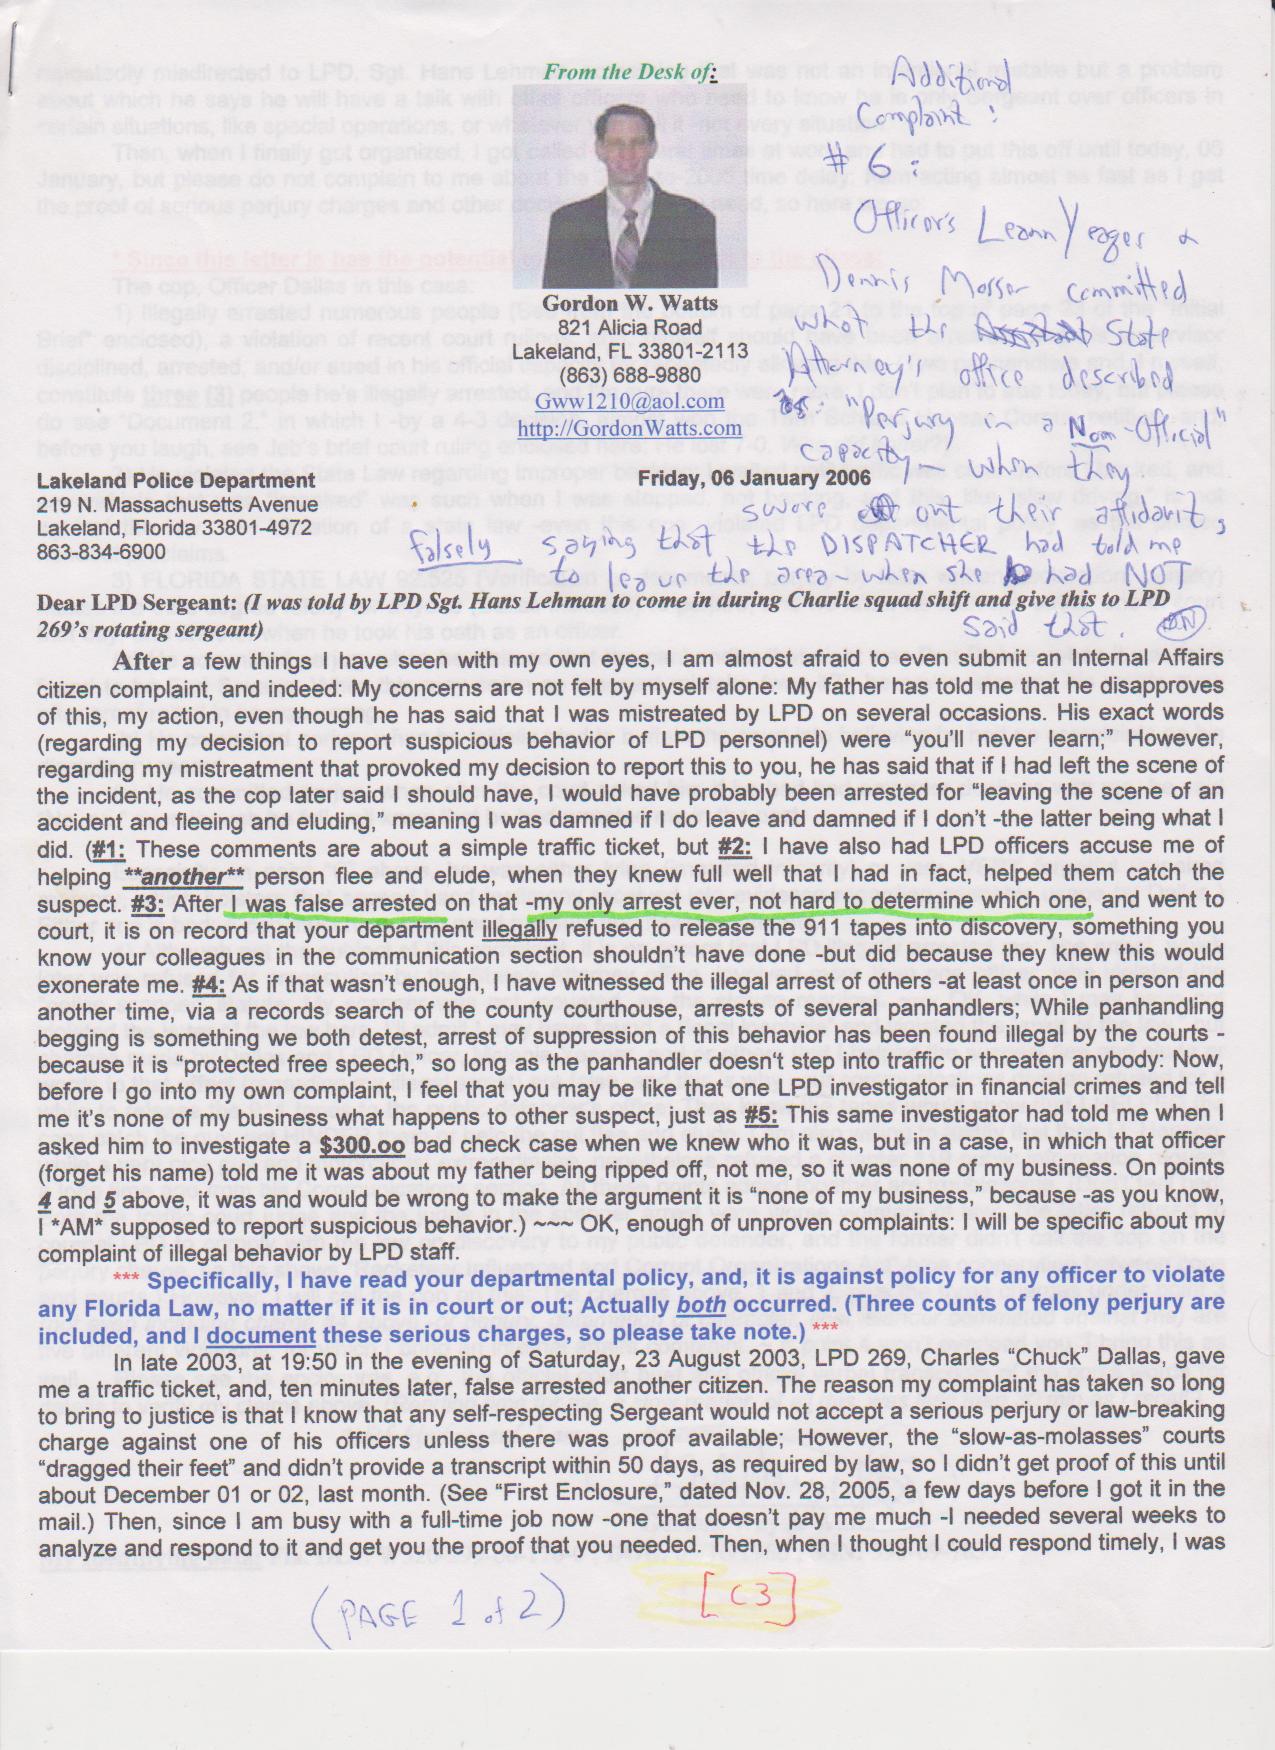 From the Desk of:
Gordon W. Watts
821 Alicia Road
Lakeland, FL 33801-2113
(863) 688-9880
Gww1210@aol.com
http://GordonWatts.com
Additional
Complaint:
# 6:
Officers Leann Yeager &
Dennis Mosser committed
what the State
Attorney's office discribed
as: "Perjury in a Non-Official
capacity," when they
swore out their affidavit,
falsely saying that the DISPATCHER had told me
to leave the area when she had NOT
said that.
Lakeland Police Department
219 N. Massachusetts Avenue
Lakeland, Florida 33801-4972
863-834-6900
Friday, 06 January 2006
Dear LPD Sergeant: (I was told by LPD Sgt. Hans Lehman to come in during Charlie squad shift and give this to LPD
269's rotating sergeant)
After a few things I have seen with my own eyes, I am almost afraid to even submit an Internal Affairs
citizen complaint, and indeed: My concerns are not felt by myself alone: My father has told me that he disapproves
of this, my action, even though he has said that I was mistreated by LPD on several occasions. His exact words
(regarding my decision to report suspicious behavior of LPD personnel) were "you'll never learn;" However,
regarding my mistreatment that provoked my decision to report this to you, he has said that if I had left the scene of
the incident, as the cop later said I should have, I would have probably been arrested for "leaving the scene of an
accident and fleeing and eluding," meaning I was damned if I do leave and damned if I don't -the latter being what I
did. (#1: These comments are about a simple traffic ticket, but #2: I have also had LPD officers accuse me of
helping **another** person flee and elude, when they knew full well that I had in fact, helped them catch the
suspect. #3: After I was false arrested on that -my only arrest ever, not hard to determine which one, and went to
court, it is on record that your department illegally refused to release the 911 tapes into discovery, something you
know your colleagues in the communication section shouldn't have done -but did because they knew this would
exonerate me. #4: As if that wasn't enough, I have witnessed the illegal arrest of others -at least once in person and
another time, via a records search of the county courthouse, arrests of several panhandlers; While panhandling
begging is something we both detest, arrest of suppression of this behavior has been found illegal by the courts -
because it is "protected free speech," so long as the panhandler doesn't step into traffic or threaten anybody: Now,
before I go into my own complaint, I feel that you may be like the one LPD investigator in financial crimes and tell
me it's none of my business what happens to other suspect, just as #5: This same investigator had told me when I
asked him to investigate a $300.oo bad check case when we knew who it was, but in a case, in which that officer
(forget his name) told me it was about my father being ripped off, not me, so it was none of my business. On points
4 and 5 above, it was and would be wrong to make the argument it is "none of my business," because -as you know,
I *AM* supposed to report suspicious behavior.) ~~~ OK, enough of unproven complaints: I will be specific about my
complaint of illegal behavior by LPD staff:
*** Specifically, I have read your departmental policy, and, it is against policy for any officer to violate
any Florida Law, no matter if it is in court or out; Actually both occurred. (Three counts of felony perjury are
included, and I document these serious charges, so please take note.) ***
In late 2003, at 19:50 in the evening of Saturday, 23 August 2003, LPD 269, Charles "Chuck" Dallas, gave
me a traffic ticket, and, ten minutes later, false arrested another citizen. The reason my complaint has taken so long
to bring to justice is that I know that any self-respecting Sergeant would not accept a serious perjury or law-breaking
charge against one of his officers unless there was proof available; However, the "slow-as-molasses" courts
"dragged their feet" and didn't provide a transcript within 50 days, as required by law, so I didn't get proof of this until
about December 01 or 02, last month. (See "First Enclosure," dated Nov. 28, 2005, a few days before I got it in the
mail.) Then, since I am busy with a full-time job now -one that doesn't pay me much -I needed several weeks to
analyze and respond to it and get you the proof that you needed. Then, when I thought I could respond timely, I was
(PAGE 1 of 2)
[C3]